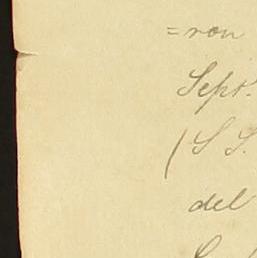 =ron
Sept.
(S S.
del